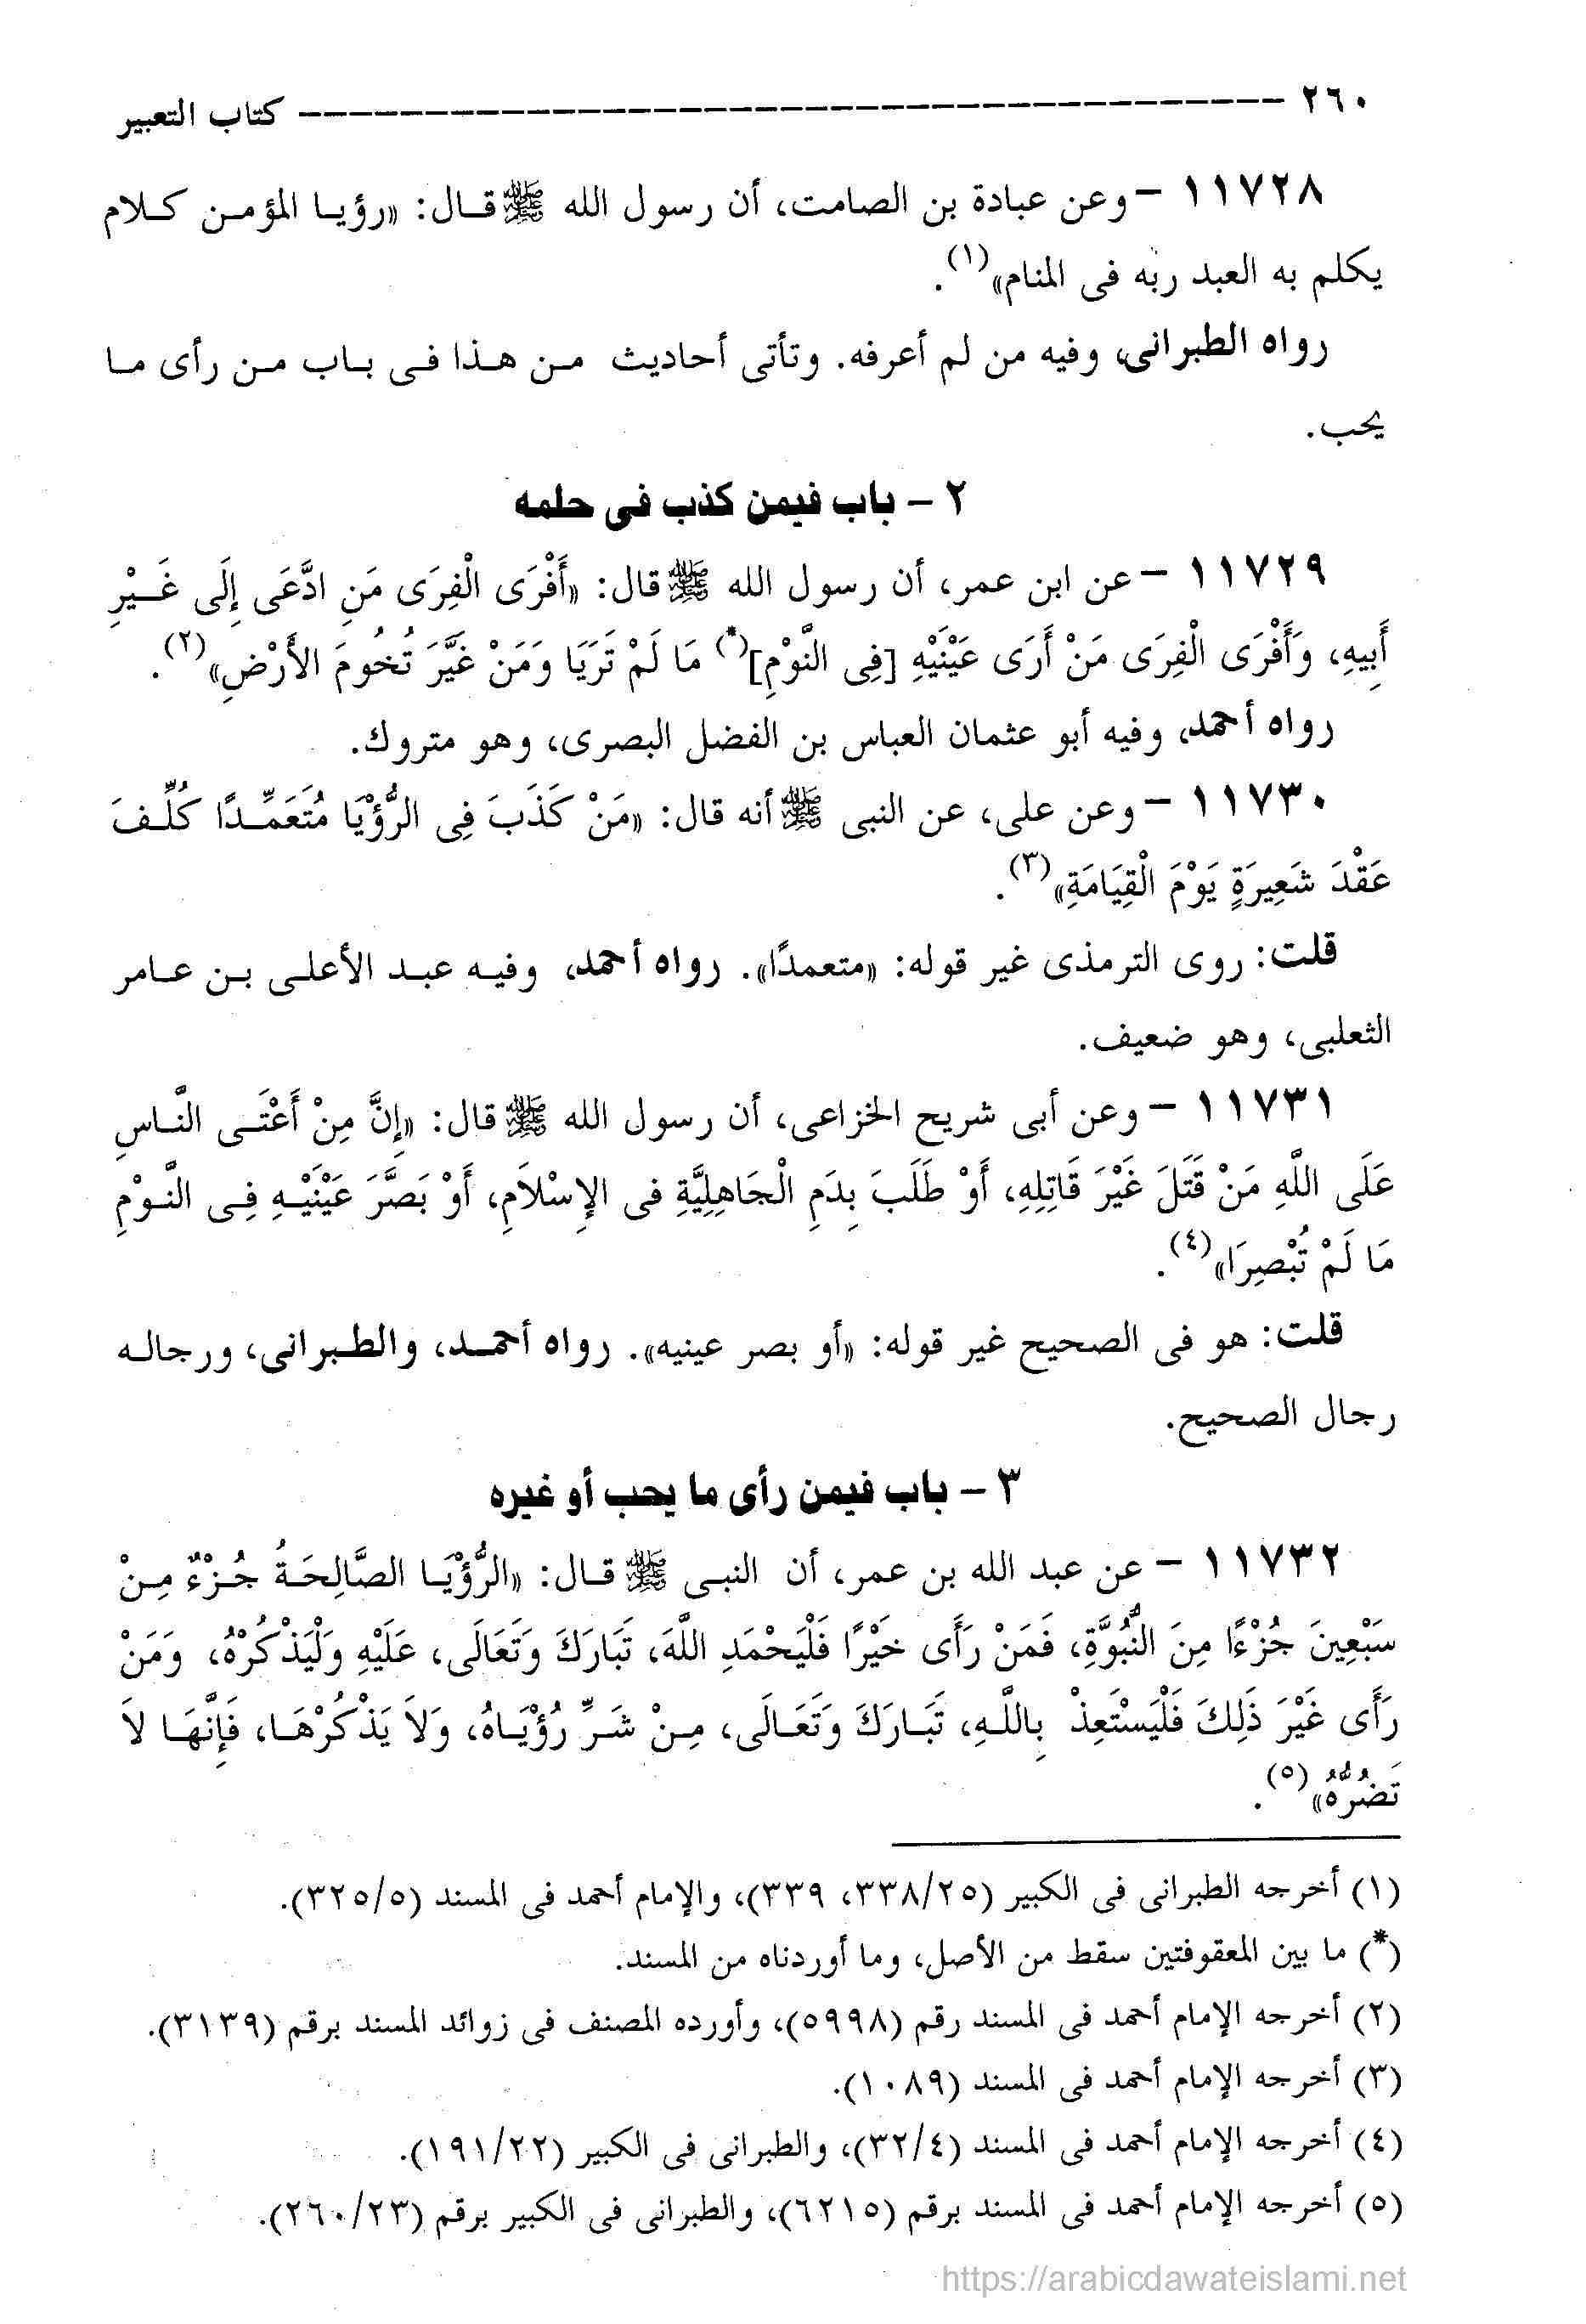 ٢٦٠ ---------------------------------------- كتاب التعبير
١١٧٢٨ – وعن عبادة بن الصامت، أن رسول الله ﷺ قـال: «رؤيـا المؤمـن كـلام
يكلم به العبد ربه فى المنام»(١).
رواه الطبرانى، وفيه من لم أعرفه. وتأتى أحاديث مـن هـذا فـى بـاب مـن رأى مـا
يحب.
٢ – باب فيمن كذب فى حلمه
١١٧٢٩ – عن ابن عمر، أن رسول الله ﷺ قال: «أَفْرَى الْفِرَى مَنِ ادَّعَى إِلَى غَـيْرِ
أَبِيهِ، وَأَفْرَى الْفِرَى مَنْ أَرَى عَيْنَيْهِ [فِى النَّوْمِ](*) مَا لَمْ تَرَيَا وَمَنْ غَيَّرَ تُخُومَ الأَرْضِ»(٢).
رواه أحمد، وفيه أبو عثمان العباس بن الفضل البصرى، وهو متروك.
١١٧٣٠ – وعن على، عن النبى ﷺ أنه قال: «مَنْ كَذَبَ فِى الرُّؤْيَا مُتَعَمِّـدًا كُلِّـفَ
عَقْدَ شَعِيرَةٍ يَوْمَ الْقِيَامَةِ»(٣).
قلت: روى الترمذى غير قوله: «متعمدًا». رواه أحمد، وفيـه عبـد الأعلـى بـن عـامر
الثعلبى، وهو ضعيف.
١١٧٣١ – وعن أبى شريح الخزاعى، أن رسول الله ﷺ قال: «إِنَّ مِنْ أَعْتَـى النَّـاسِ
عَلَى اللَّهِ مَنْ قَتَلَ غَيْرَ قَاتِلِهِ، أَوْ طَلَبَ بِدَمِ الْجَاهِلِيَّةِ فى الإِسْلاَمِ، أَوْ بَصَّرَ عَيْنَيْـهِ فِـى النَّـوْمِ
مَا لَمْ تُبْصِرَا»(٤).
قلت: هو فى الصحيح غير قوله: «أو بصر عينيه». رواه أحمـد، والطـبرانى، ورجالـه
رجال الصحيح.
٣ – باب فيمن رأى ما يحب أو غيره
١١٧٣٢ – عن عبد الله بن عمر، أن النبـى ﷺ قـال: «الرُّؤْيَـا الصَّالِحَـةُ جُـزْءٌ مِـنْ
سَبْعِينَ جُزْءًا مِنَ النُّبُوَّةِ، فَمَنْ رَأَى خَيْرًا فَلْيَحْمَدِ اللَّهَ، تَبَارَكَ وَتَعَالَى، عَلَيْهِ وَلْيَذْكُرْهُ، وَمَنْ
رَأَى غَيْرَ ذَلِكَ فَلْيَسْتَعِذْ بِاللَّـهِ، تَبَـارَكَ وَتَعَـالَى، مِـنْ شَـرِّ رُؤْيَـاهُ، وَلاَ يَذْكُرْهَـا، فَإِنَّهَـا لاَ
تَضُرُّهُ»(٥).
(١) أخرجه الطبرانى فى الكبير (٣٣٨/٢٥، ٣٣٩)، والإمام أحمد فى المسند (٣٢٥/٥).
(*) ما بين المعقوفتين سقط من الأصل، وما أوردناه من المسند.
(٢) أخرجه الإمام أحمد فى المسند رقم (٥٩٩٨)، وأورده المصنف فى زوائد المسند برقم (٣١٣٩).
(٣) أخرجه الإمام أحمد فى المسند (١٠٨٩).
(٤) أخرجه الإمام أحمد فى المسند (٣٢/٤)، والطبرانى فى الكبير (١٩١/٢٢).
(٥) أخرجه الإمام أحمد فى المسند برقم (٦٢١٥)، والطبرانى فى الكبير برقم (٢٦٠/٢٣).
https://arabicdawateislami.net